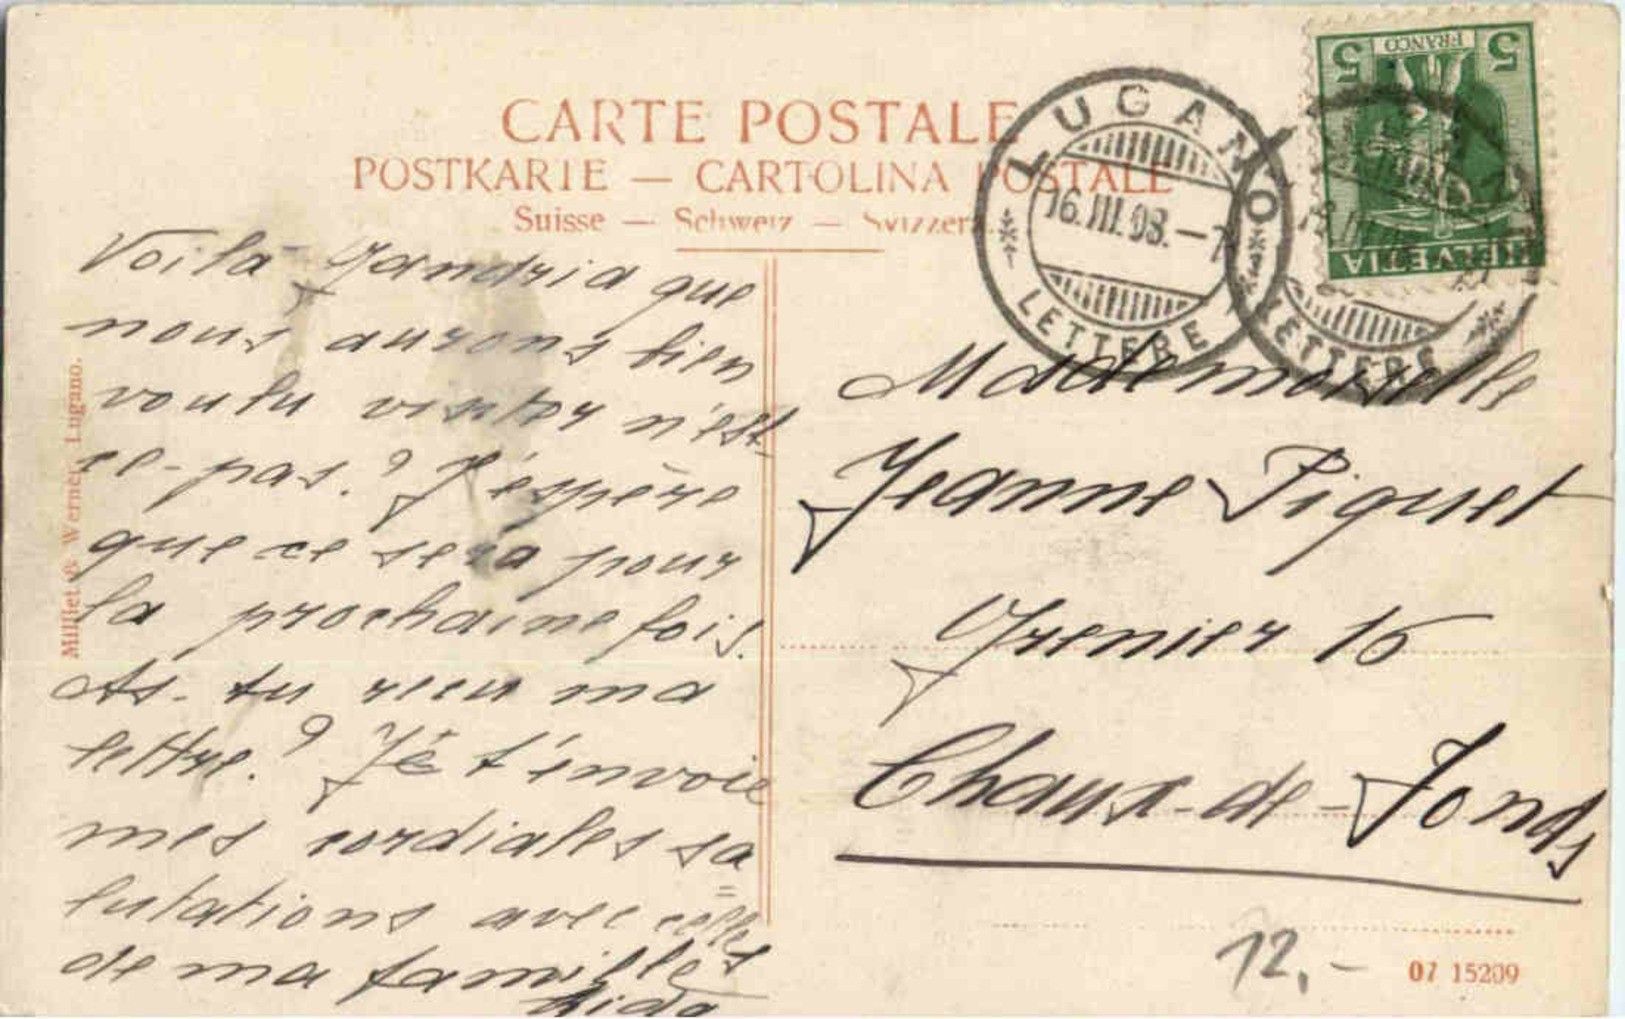 CARTE POSTALE
POSTKARTE — CARTOLINA POSTALE
Suisse — Schweiz — Svizzera
LUGANO
16.III.08.-7
LETTERE
LETTERE
5 FRANCO 5
HELVETIA
Voilà Gandria que
nous aurons bien
voulu visiter n'est-
ce-pas? J'espère
que ce sera pour
la prochaine fois.
As-tu recu ma
lettre? Je t'envoie
mes cordiales sa=
lutations avec celles
de ma famille
Aida
Mademoiselle
Jeanne Piguet
Grenier 16
Chaux-de-Fonds
12.-
07 15209
Millet & Werner, Lugano.